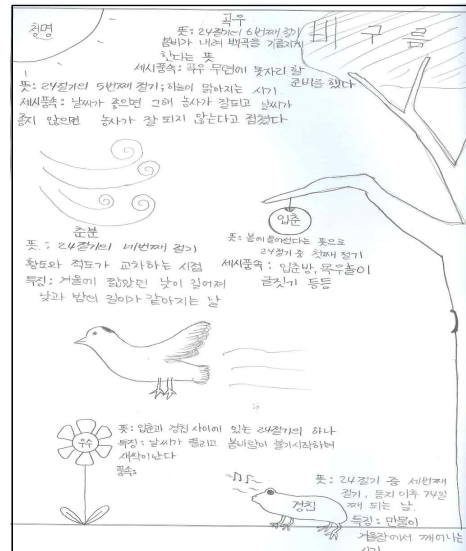 청명
곡우
뜻: 24절기에 6번째 절기
봄비가 내려 백곡을 기름지게
한다는 뜻
세시풍속: 곡우 무렵에 못자리 할
준비를 했다
비구름
뜻: 24절기의 5번째 절기; 하늘이 맑아지는 시기
세시풍속: 날씨가 좋으면 그해 농사가 잘되고 날씨가
좋지 않으면 농사가 잘 되지 않는다고 점쳤다
춘분
뜻: 24절기의 네번째 절기
황도와 적도가 교차하는 시점
특징: 겨울에 짧았던 낮이 길어져
낮과 밤의 길이가 같아지는 날
입춘
뜻: 봄에 들어선다는 뜻으로
24절기 중 첫째 절기
세시풍속: 입춘방, 목우놀이
글짓기 등등
우수
뜻: 입춘과 경칩 사이에 있는 24절기의 하나
특징: 날씨가 풀리고 봄바람이 불기시작하며
새싹이난다
풍속:
경칩
뜻: 24절기 중 세번째
절기, 동지 이후 74일
째 되는 날.
특징: 만물이
겨울잠에서 깨어나는
시기